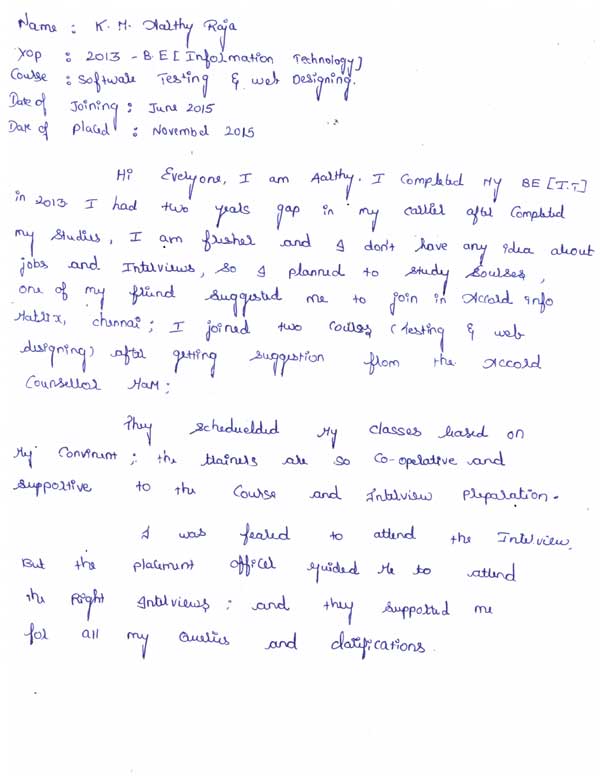 Name : K. M. Aarthy Raja
YOP : 2013 - B.E [Information Technology]
Course : Software Testing & web Designing.
Date of Joining : June 2015
Date of placed : November 2015
Hi Everyone, I am Aarthy. I Completed My BE [I.T]
in 2013. I had two years gap in my carrer after Completed
my Studies, I am fresher and I don't have any idea about
jobs and Interviews, so I planned to study Courses,
one of my friend suggested me to join in Accord info
Matrix, chennai; I joined two Courses (Testing & web
designing) after getting suggestion from the Accord
Counsellor MaM;
They schedueleded My classes based on
My Convinent; the trainers are so Co-operative and
supportive to the Course and Interview Preparation.
I was feared to attend the Interview.
But the placement officer guided Me to attend
the Right Interviews; and they supported me
for all my Queries and clarifications.